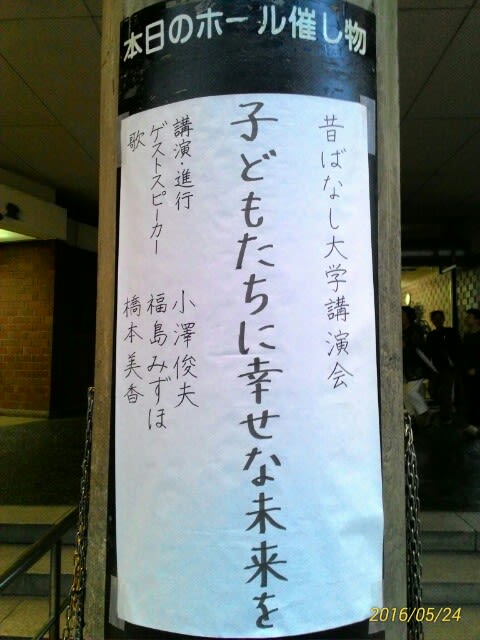 本日のホール催し物
昔ばなし大学講演会
子どもたちに幸せな未来を
講演・進行 小澤俊夫
ゲストスピーカー 福島みずほ
歌 橋本美香
2016/05/24